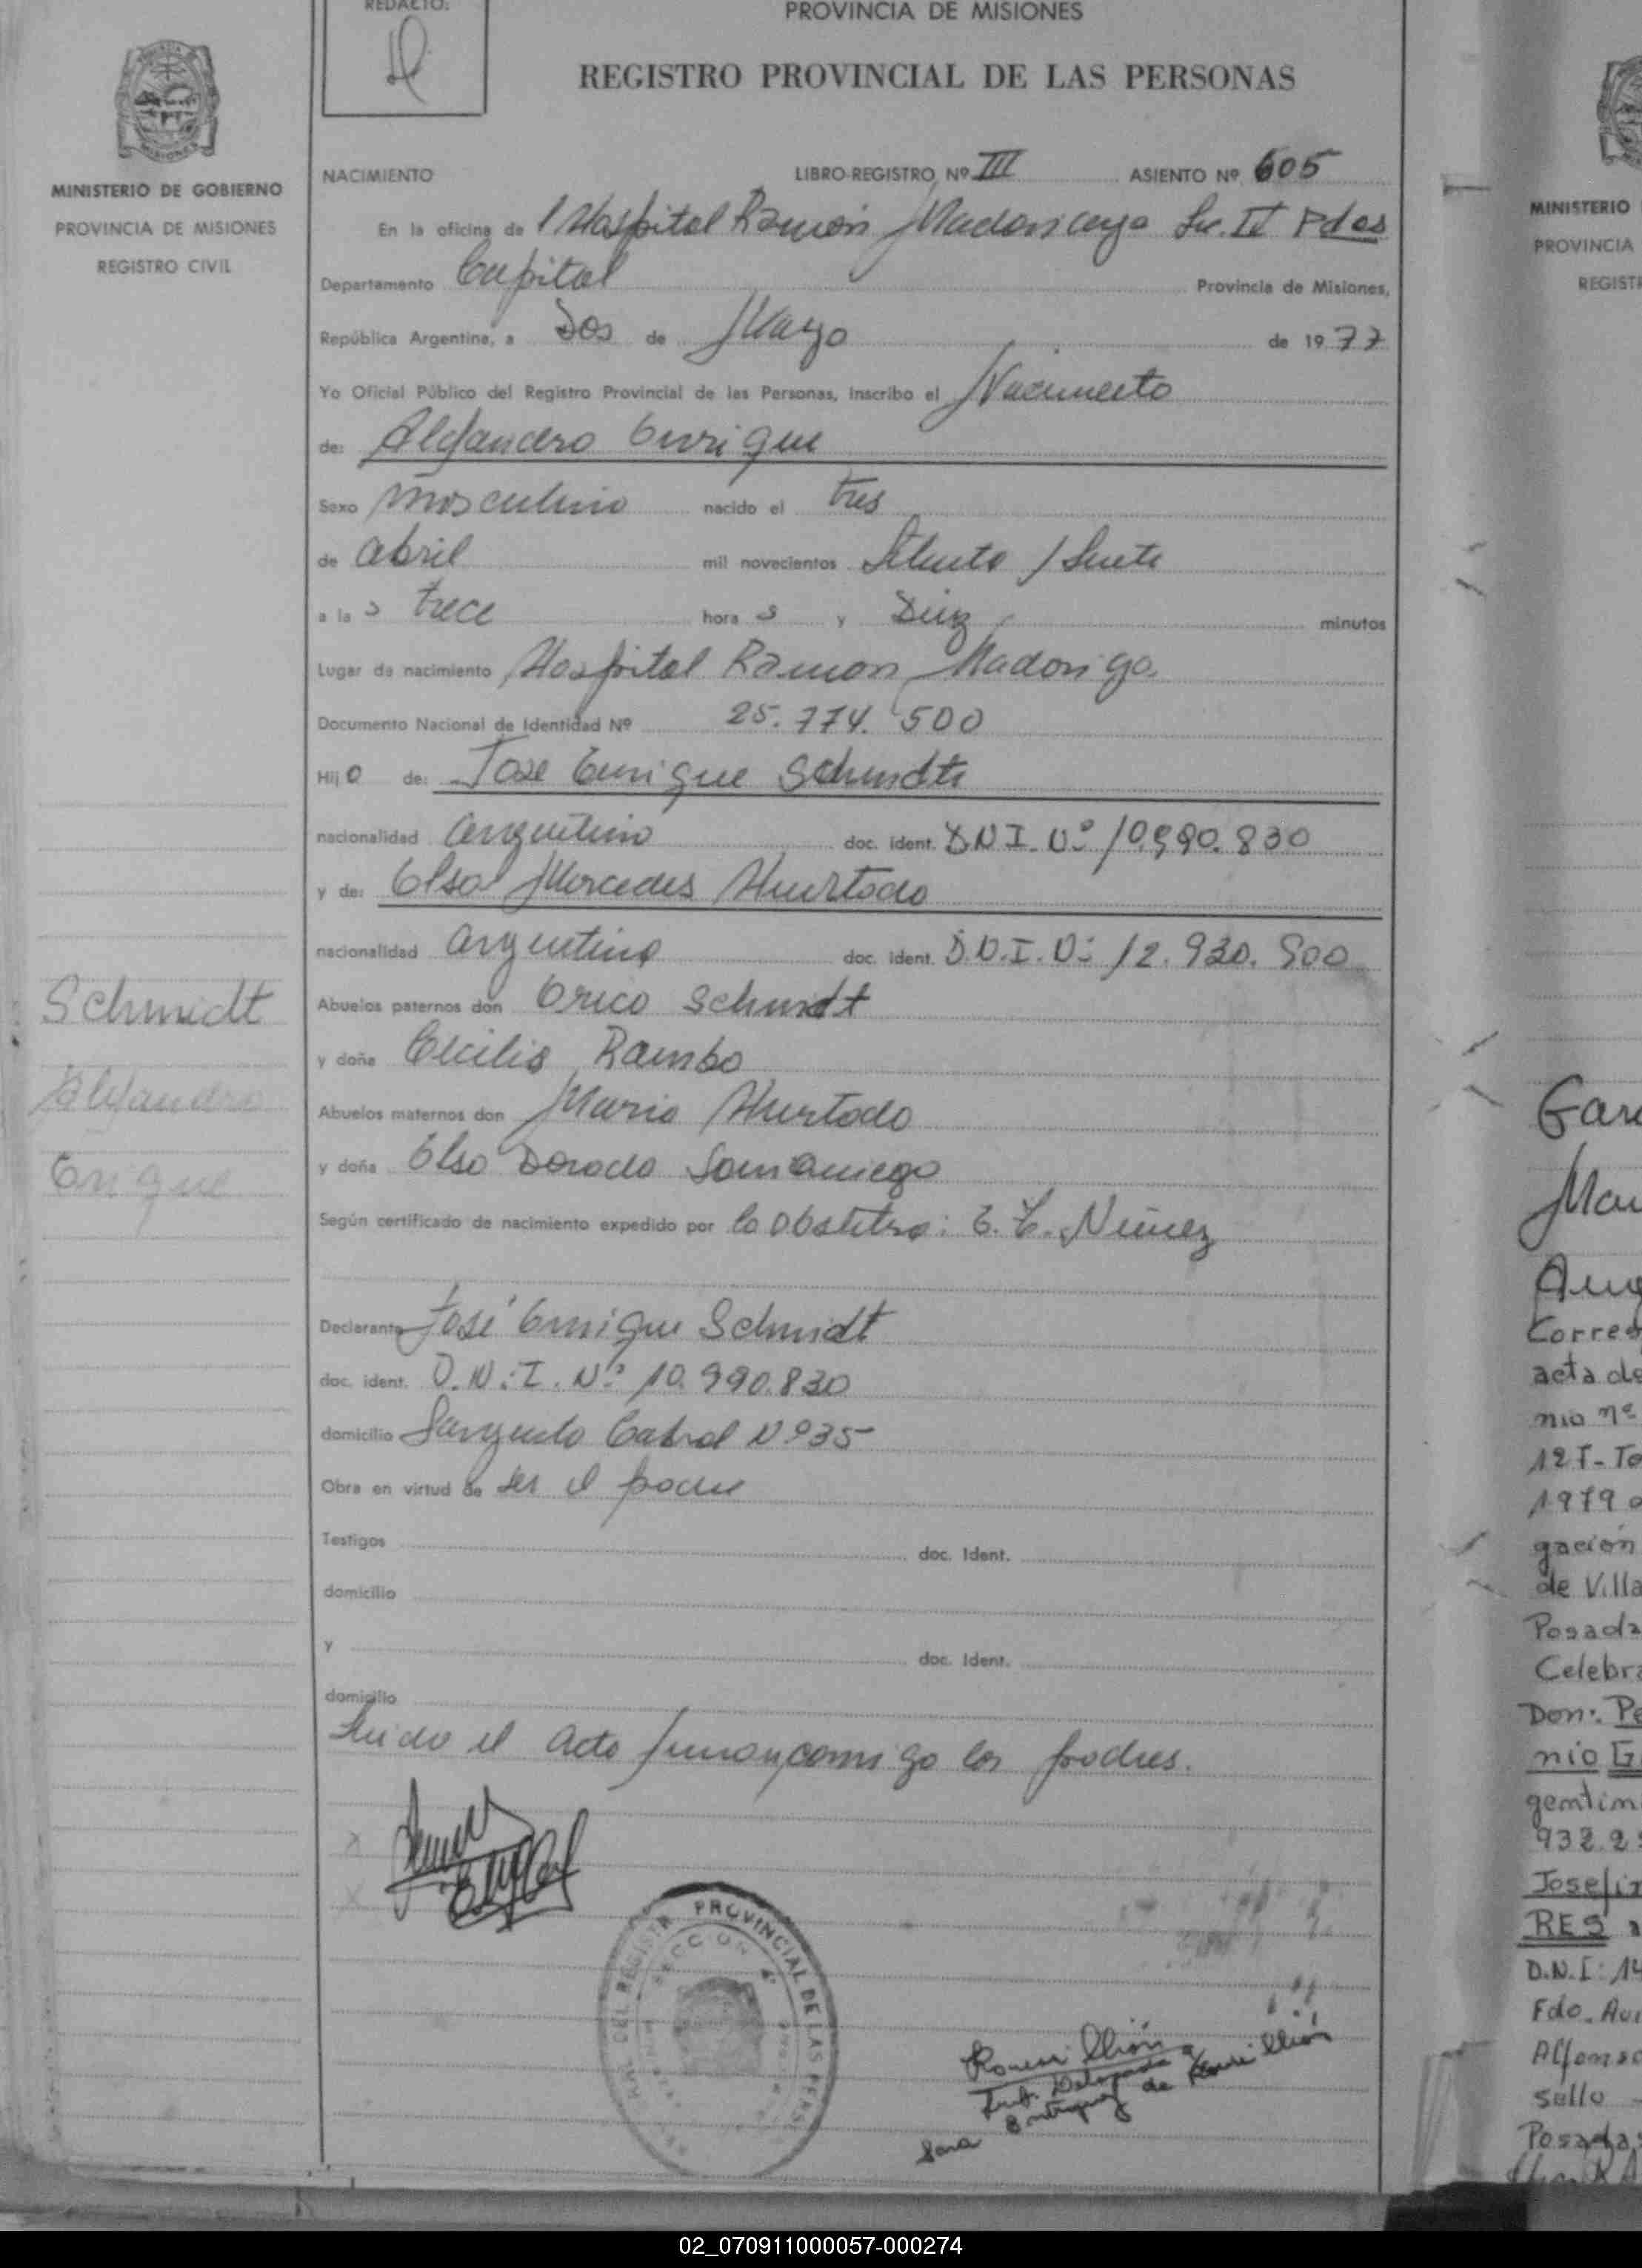 REDACTO:
PROVINCIA DE MISIONES
REGISTRO PROVINCIAL DE LAS PERSONAS
MINISTERIO DE GOBIERNO
PROVINCIA DE MISIONES
REGISTRO CIVIL
NACIMIENTO LIBRO-REGISTRO Nº III ASIENTO Nº 605
En la oficina de Hospital Ramón Madariaga Sec. II Pdas
Departamento Capital Provincia de Misiones,
República Argentina, a Dos de Mayo de 1977
Yo Oficial Público del Registro Provincial de las Personas, inscribo el Nacimiento
de: Alejandro Enrique
Sexo masculino nacido el tres
de abril mil novecientos Setenta y Siete
a la s trece hora s y Diez minutos
Lugar de nacimiento Hospital Ramon Madariga.
Documento Nacional de Identidad Nº 25.774.500
Hij o de: Jose Enrique Schmidt
nacionalidad argentino doc. ident. D.N.I. Nº 10.990.830
y de: Elsa Mercedes Hurtado
nacionalidad argentina doc. ident. D.N.I. Nº 12.930.900
Abuelos paternos don Erico Schmidt
y doña Cecilia Rambo
Abuelos maternos don Mario Hurtado
y doña Elsa Dorada Samaniego
Según certificado de nacimiento expedido por la Obstetra: E. E. Nuñez
Declarante José Enrique Schmidt
doc. ident. D.N.I. Nº 10.990.830
domicilio Sargento Cabral Nº 35
Obra en virtud de ser el padre
Testigos doc. Ident.
domicilio
y doc. Ident.
domicilio
Leido el acto firman conmigo los padres.
Schmidt
Alejandro
Enrique
PROVINCIAL DE LAS PERS
SECCION 4ª
Sub. Delegada
Sara
de
MINISTERIO
PROVINCIA
Corres
acta de
nio nº
1979
gación
de Villa
Posada
Celebra
Don: Pe
nio
gentin
932.2
RES a
D.N.I: 14
Fdo.
Alfonso
sello
Posadas
02_070911000057-000274